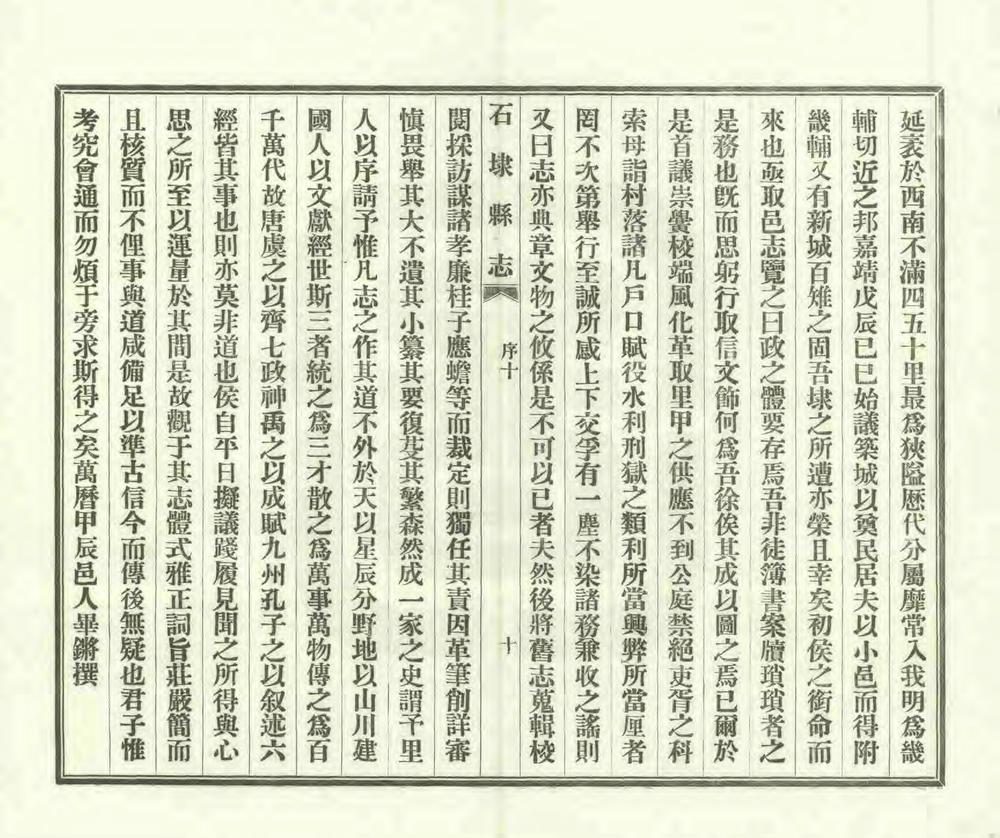 延袤於西南不滿四五十里最爲狹隘歷代分屬靡常入我明爲畿
輔切近之邦嘉靖戊辰已巳始議築城以奠民居夫以小邑而得附
畿輔又有新城百雉之固吾埭之所遭亦榮且幸矣初侯之銜命而
來也亟取邑志覽之曰政之體要存焉吾非徒簿書案牘瑣瑣者之
是務也旣而思躬行取信文飾何爲吾徐俟其成以圖之焉已爾於
是首議崇黌校端風化革取里甲之供應不到公庭禁絕吏胥之科
索毋詣村落諸凡戶口賦役水利刑獄之類利所當興弊所當厘者
罔不次第舉行至誠所感上下交孚有一塵不染諸務兼收之謠則
又曰志亦典章文物之攸係是不可以已者夫然後將舊志蒐輯校
石埭縣志
序十
十
閱採訪謀諸孝廉桂子應蟾等而裁定則獨任其責因革筆削詳審
愼畏舉其大不遺其小纂其要復芟其繁森然成一家之史謂予里
人以序請予惟凡志之作其道不外於天以星辰分野地以山川建
國人以文獻經世斯三者統之爲三才散之爲萬事萬物傳之爲百
千萬代故唐虞之以齊七政神禹之以成賦九州孔子之以叙述六
經皆其事也則亦莫非道也侯自平日擬議踐履見聞之所得與心
思之所至以運量於其間是故觀于其志體式雅正詞旨莊嚴簡而
且核質而不俚事與道咸備足以準古信今而傳後無疑也君子惟
考究會通而勿煩于旁求斯得之矣萬曆甲辰邑人畢鏘撰